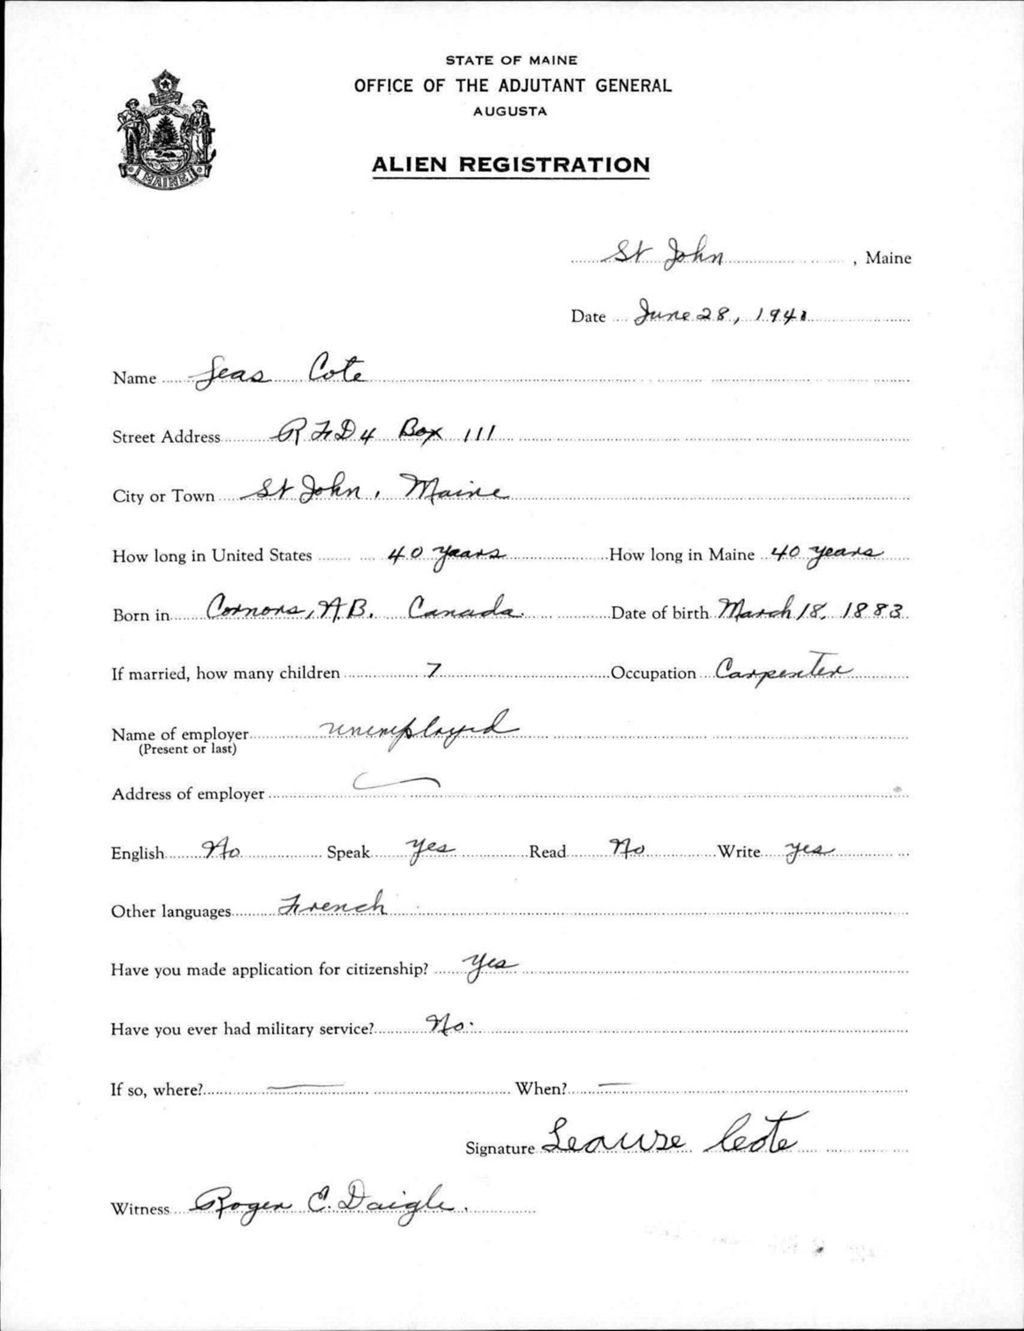 STATE OF MAINE
OFFICE OF THE ADJUTANT GENERAL
AUGUSTA
MAINE
ALIEN REGISTRATION
St John, Maine
Date June 28, 1940
Name Leas Cote
Street Address RFD 4 Box 111
City or Town St John, Maine
How long in United States 40 years How long in Maine 40 years
Born in Connors, N.B. Canada. Date of birth March 18, 1883
If married, how many children 7 Occupation Carpenter
Name of employer unemployed
(Present or last)
Address of employer
English No Speak Yes Read No Write Yes
Other languages French
Have you made application for citizenship? Yes
Have you ever had military service? No.
If so, where? — When? —
Signature Cote
Witness Roger C. Daigle.